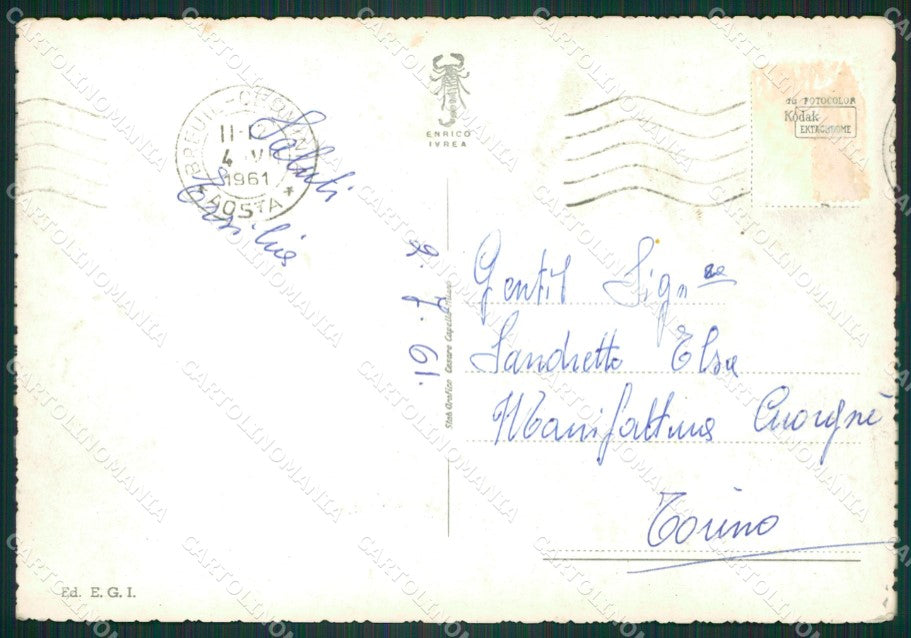 ENRICO
IVREA
BREUIL-CERVINIA
4 VII
1961
* AOSTA *
Saluti
Ersilia
7. 61.
Stab. Grafico Cesare Capello - Milano
da FOTOCOLOR
Kodak
EKTACHROME
Gentil Sig.na
Sandretto Elsa
Manifattura Cuorgnè
Torino
Ed. E. G. I.
CARTOLINOMANIA